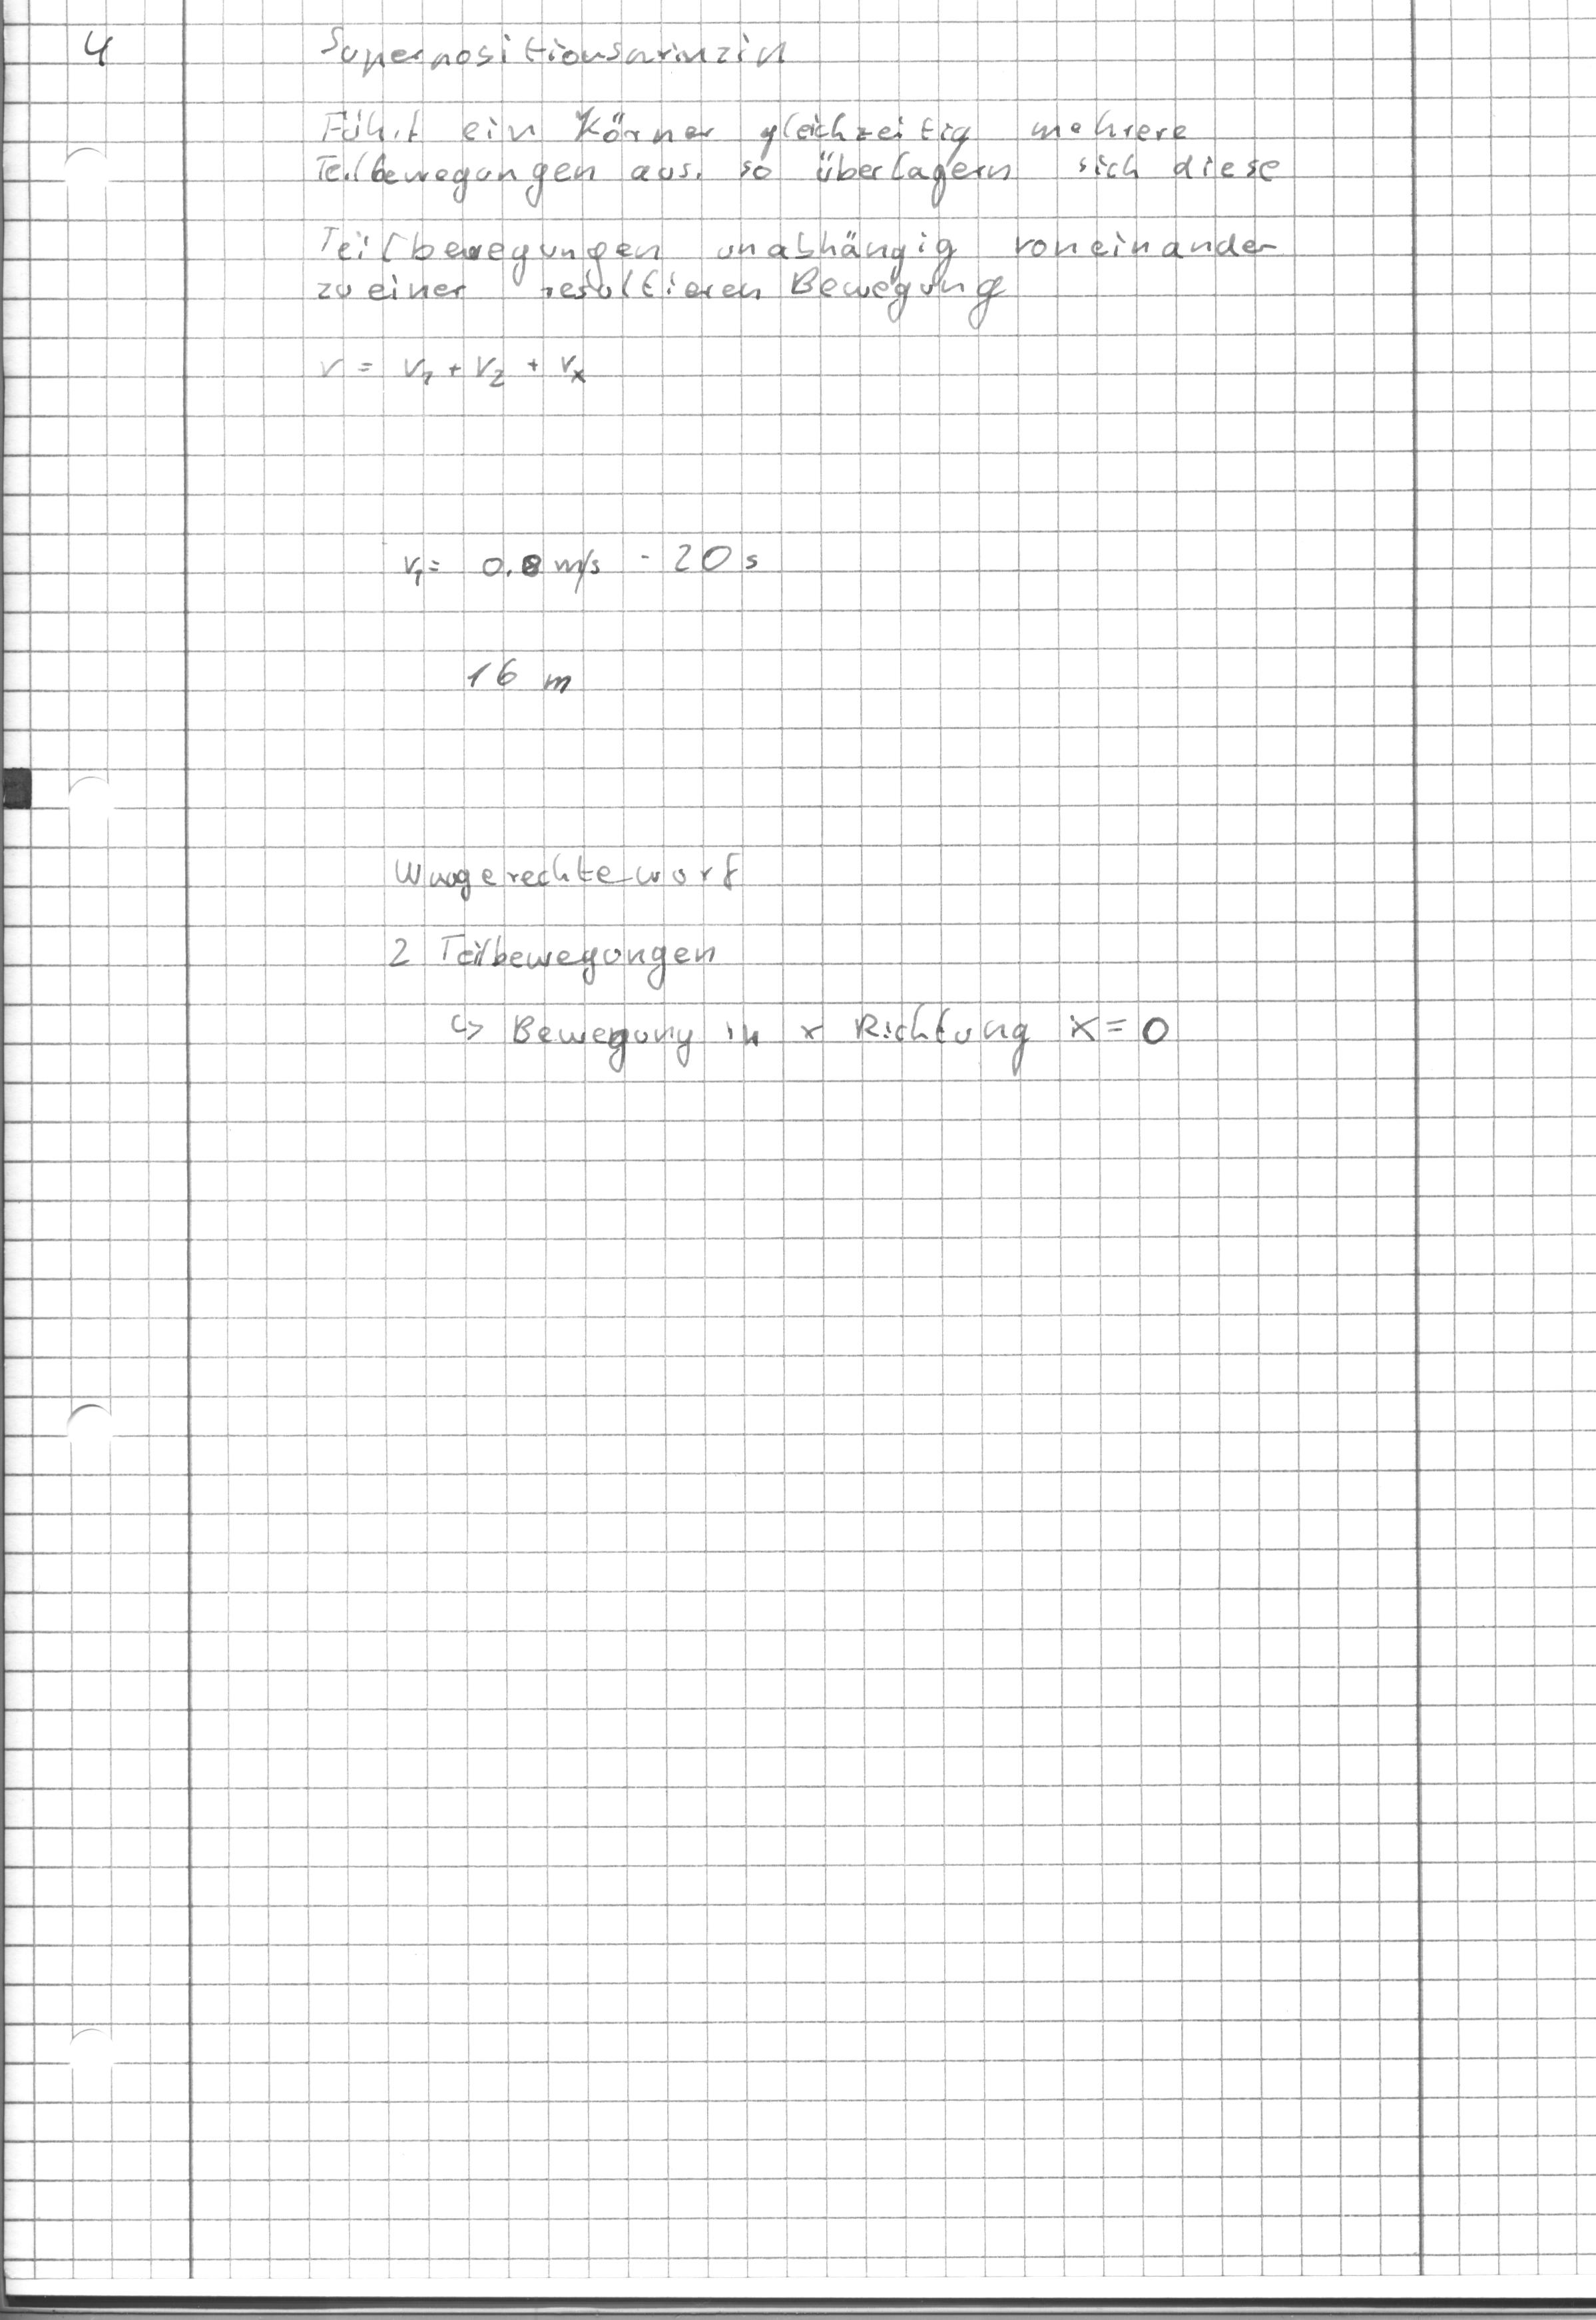 4 Superpositionsprinzip
Führt ein Körper gleichzeitig mehrere
Teilbewegungen aus, so überlagern sich diese
Teilbewegungen unabhängig voneinander
zu einer resultieren Bewegung
v = v₁ + v₂ + vₓ
v₁ = 0,8 m/s · 20 s
16 m
Waagerechte wurf
2 Teilbewegungen
↳ Bewegung in x Richtung x = 0